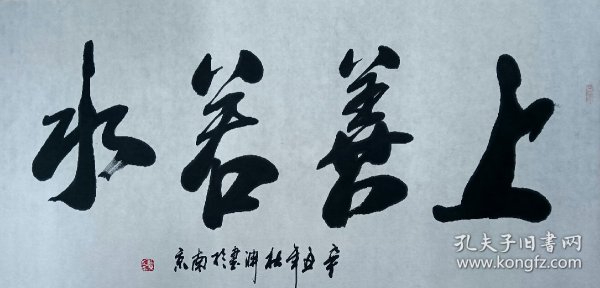 上善若水
辛丑年杜渊書於南京
孔夫子旧书网
www.kongfz.com